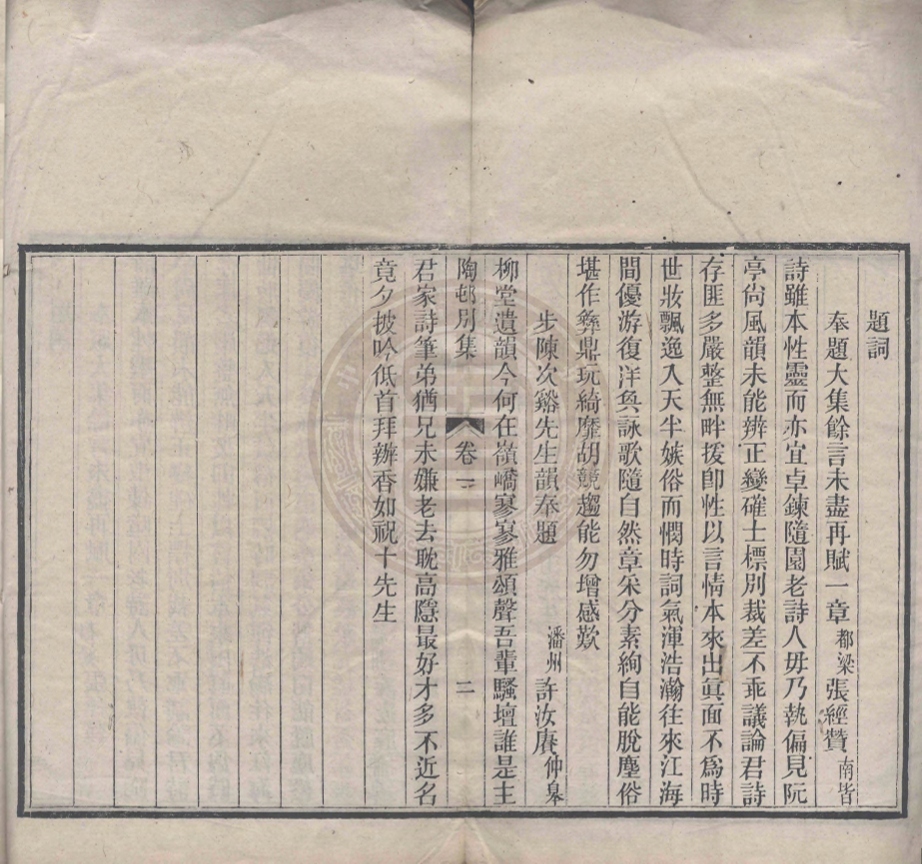 題詞
奉題大集餘言未盡再賦一章 都梁 張經贊 南皆
詩雖本性靈而亦宜卓鍊隨園老詩人毋乃執偏見阮
亭尙風韻未能辨正變確士標別裁差不乖議論君詩
存匪多嚴整無畔援卽性以言情本來出眞面不爲時
世妝飄逸入天半嫉俗而憫時詞氣渾浩瀚往來江海
間優游復泮奐詠歌隨自然章采分素絢自能脫塵俗
堪作彝鼎玩綺靡胡競趨能勿增感歎
步陳次谿先生韻奉題 潘州 許汝賡 仲皋
柳堂遺韻今何在嶺嶠寥寥雅頌聲吾輩騷壇誰是主
陶邨別集 卷一 二
君家詩筆弟猶兄未嫌老去耽高隱最好才多不近名
竟夕披吟低首拜辦香如祝十先生